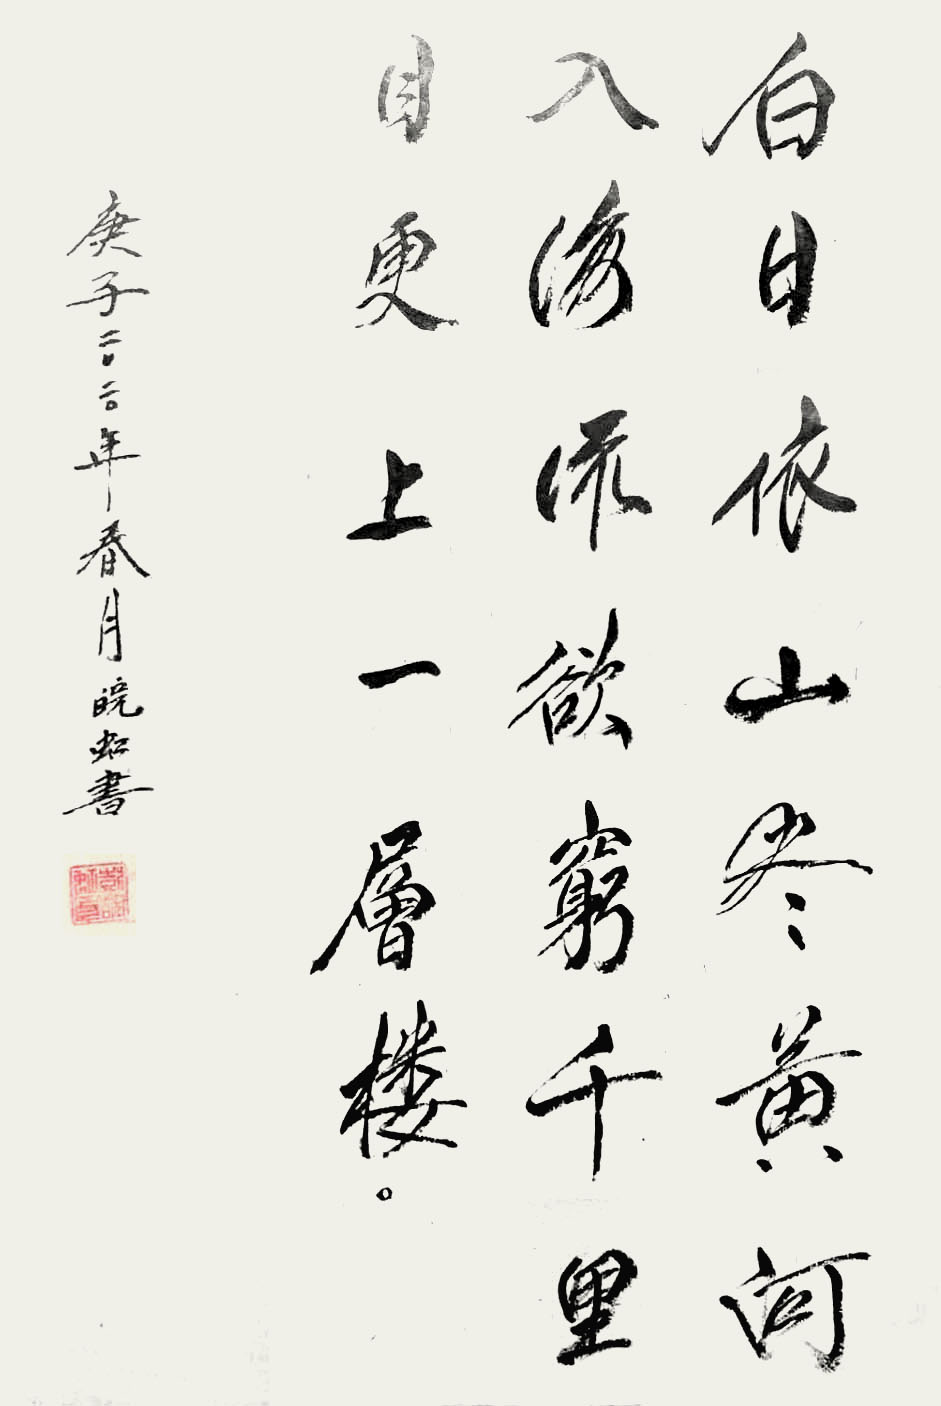 白日依山尽黄河
入海流欲窮千里
目更上一層楼。
庚子二〇二〇年春月皖虹書